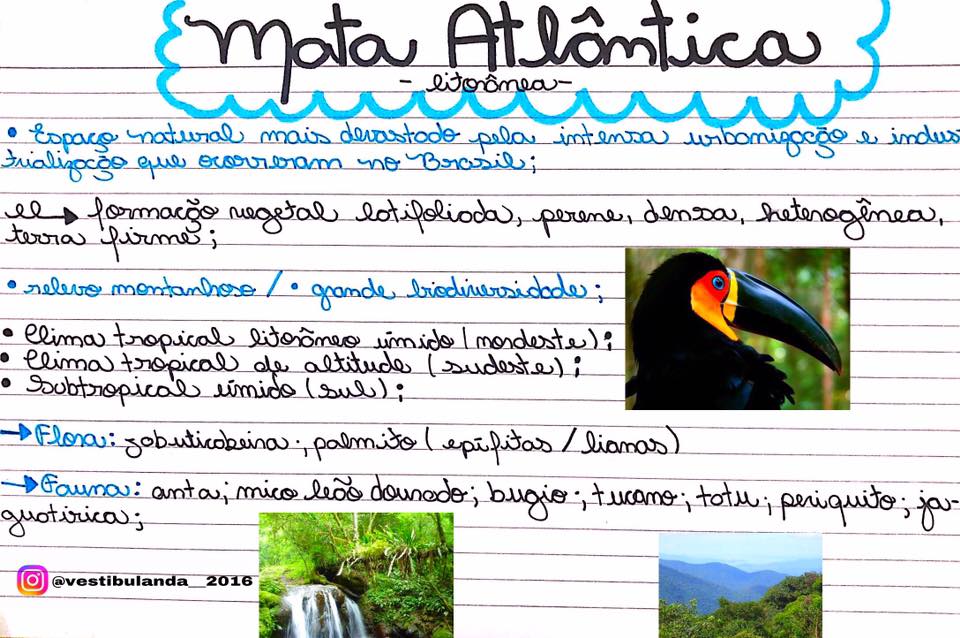 Mata Atlântica
- litorânea -
• Espaço natural mais devastado pela intensa urbanização e indus
trialização que ocorreram no Brasil;
formação vegetal latifoliada, perene, densa, heterogênea,
terra firme;
• relevo montanhoso / • grande biodiversidade;
• Clima tropical litorâneo úmido (nordeste);
• Clima tropical de altitude (sudeste);
• Subtropical úmido (sul);
→ Flora: jabuticabeira; palmito (epífitas / lianas)
→ Fauna: anta; mico leão dourado; bugio; tucano; tatu; periquito; ja-
guatirica;
@vestibulanda__2016